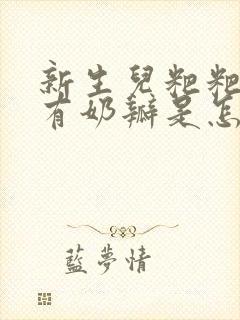 新生兒粑粑
有奶瓣是怎
藍夢情